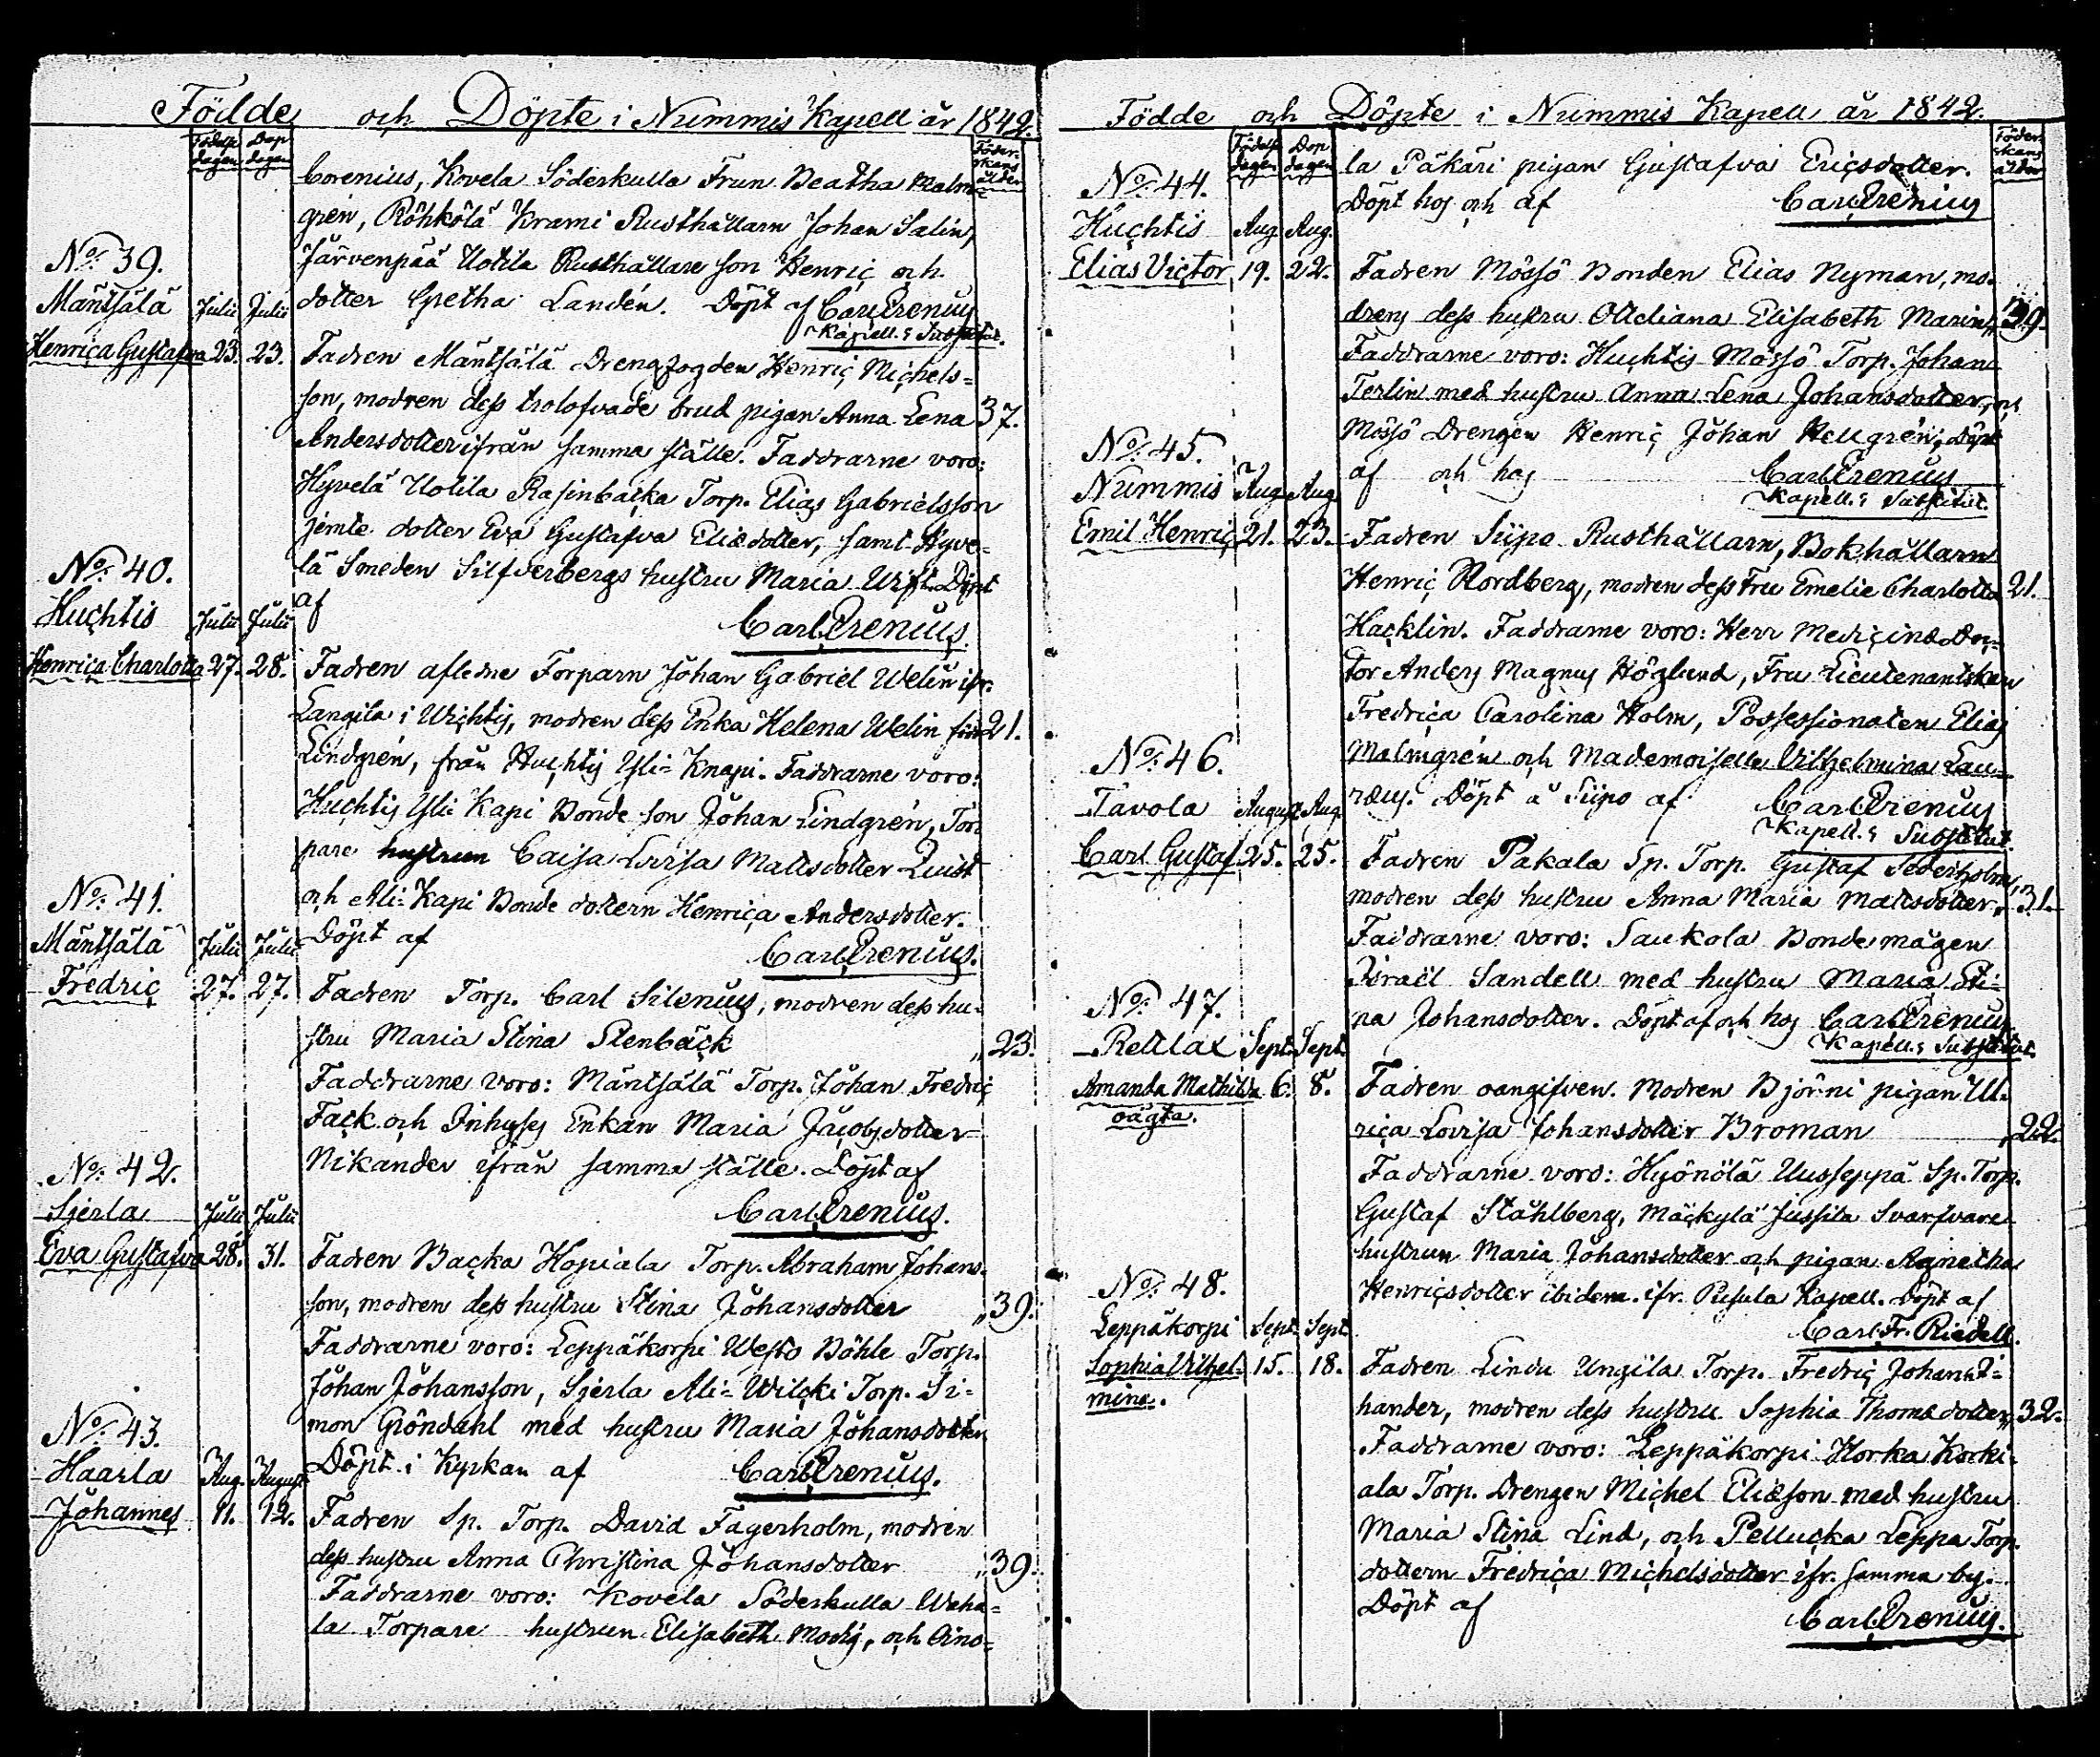 Födde och Döpte i Nummis Kapell år 1842.
Födelse dagen
Dop dagen
Föder-skans ålder
Corenius, Kovela Söderkulla Frun Beatha Malm-
grén, Röhkölä Krami Rusthållarn Johan Salin,
Järvenpää Uotila Rusthållare son Henriç och
dotter Gretha Landén. Döpt af Carl Çrenius
Kapell.s Substitut.
No. 39.
Mäntsälä Julii Julii
Henriça Gustafva 23. 23. Fadren Mäntsälä Drengfogden Henriç Michels=
son, modren dess trolofvade brud pigan Anna Lena 37.
Andersdotter ifrån samma ställe. Faddrarne voro:
Hyvelä Uotila Rasinbaçka Torp. Elias Gabrielsson
jemte dotter Eva Gustafva Eliædotter, samt Hyve-
lä Smeden Silfverbergs hustru Maria Wift. Döpt
af Carl Çrenius.
No. 40.
Huçhtis Julii Julii
Henriça Charlotta 27. 28. Fadren afledne Torparn Johan Gabriel Welin ifr.
Langila i Wiçhtis, modren dess Enka Helena Welin född 21.
Lindgrén, från Huçhtis Yli=Knapi. Faddrarne voro:
Huçhtis Yli Kapi Bonde son Johan Lindgrén, Tor-
pare hustrun Caisa Lovisa Mattsdotter Quist
och Ali=Kapi Bonde dottern Henriça Andersdotter.
Döpt af Carl Çrenius.
No. 41.
Mäntsälä Julii Julii
Fredriç 27. 27. Fadren Torp. Carl Silenius, modren dess hu-
stru Maria Stina Stenbäçk „ 23.
Faddrarne voro: Mäntsälä Torp. Johan Fredriç
Façk och Inhyses Enkan Maria Jacobsdotter
Nikander ifrån samma ställe. Döpt af
Carl Çrenius.
No. 42.
Sjerla Julii Julii
Eva Gustafva 28. 31. Fadren Baçka Hopiala Torp. Abraham Johans-
son, modren dess hustru Stina Johansdotter „ 39.
Faddrarne voro: Leppäkorpi Westo Böhle Torp.
Johan Johansson, Sjerla Ali=Wilçki Torp. Si-
mon Gröndahl med hustru Maria Johansdotter
Döpt i Kyrkan af Carl Çrenius.
No. 43.
Haarla Aug. August
Johannes 11. 12. Fadren Sp. Torp. David Fagerholm, modren
dess hustru Anna Christina Johansdotter „ 39.
Faddrarne voro: Kovela Söderkulla Waha=
la Torpare hustrun Elisabeth Modig, och Oino=
Födde och Döpte i Nummis Kapell år 1842.
Födelse dagen
Dop dagen
Föder-skans ålder
la Päkäri pigan Gustafva Eriçsdotter.
Döpt hos och af Carl Çrenius
No. 44.
Huçhtis Aug. Aug.
Elias Viçtor 19. 22. Fadren Mössö Bonden Elias Nyman, mo-
drens dess hustru Ottiliana Elisabeth Marin „ 39.
Faddrarne voro: Huçhtis Mössö Torp. Johan
Terlin med hustru Anna Lena Johansdotter, och
Mössö Drengen Henriç Johan Hellgrén, Döpt
af och hos Carl Çrenius
Kapell.s Substitut.
No. 45.
Nummis Aug. Aug.
Emil Henriç 21. 23. Fadren Siipo Rusthållarn, Bokhållarn
Henriç Nordberg, modren dess Fru Emelie Charlotta 21.
Haçklin. Faddrarne voro: Herr Mediçinæ Doc-
tor Anders Magnus Höglund, Fru Lieutenantskan
Fredriça Carolina Holm, Possessionaten Elias
Malmgrén och Mademoiselle Vilhelmina Lau-
ræus. Döpt å Siipo af Carl Çrenius
Kapell.s Substitut.
No. 46.
Tavola August Aug.
Carl Gustaf 25. 25. Fadren Pakala Sp. Torp. Gustaf Sederholm,
modren dess hustru Anna Maria Mattsdotter „ 31.
Faddrarne voro: Saukola Bondemågen
Israël Sandell med hustru Maria Sti-
na Johansdotter. Döpt af och hos Carl Çrenius
Kapell.s Substitut.
No. 47.
Retlax Sept. Sept.
Amanda Mathilda 6. 8. Fadren oangifven. Modren Bjorni pigan Ul-
oägta. riça Lovisa Johansdotter Broman „ 22.
Faddrarne voro: Hyönölä Uusseppä Sp. Torp.
Gustaf Ståhlberg, Mäçkylä Jussila Svarfvare
hustrun Maria Johansdotter och pigan Agnetha
Henriçsdotter ibidem. ifr. Pusula Kapell. Döpt af
Carl Fr. Riedell.
No. 48.
Leppäkorpi Sept. Sept.
Sophia Vilhel- 15. 18. Fadren Lindu Ungila Torp. Fredriç Johan Ti-
mina. hander, modren dess hustru Sophia Thomædotter „ 32.
Faddrarne voro: Leppäkorpi Horka Korki-
ala Torp. Drengen Michel Eliæson med hustru
Maria Stina Lind, och Pelluçka Leppa Torp.
dottern Fredriça Michelsdotter ifr. samma by.
Döpt af Carl Çrenius.